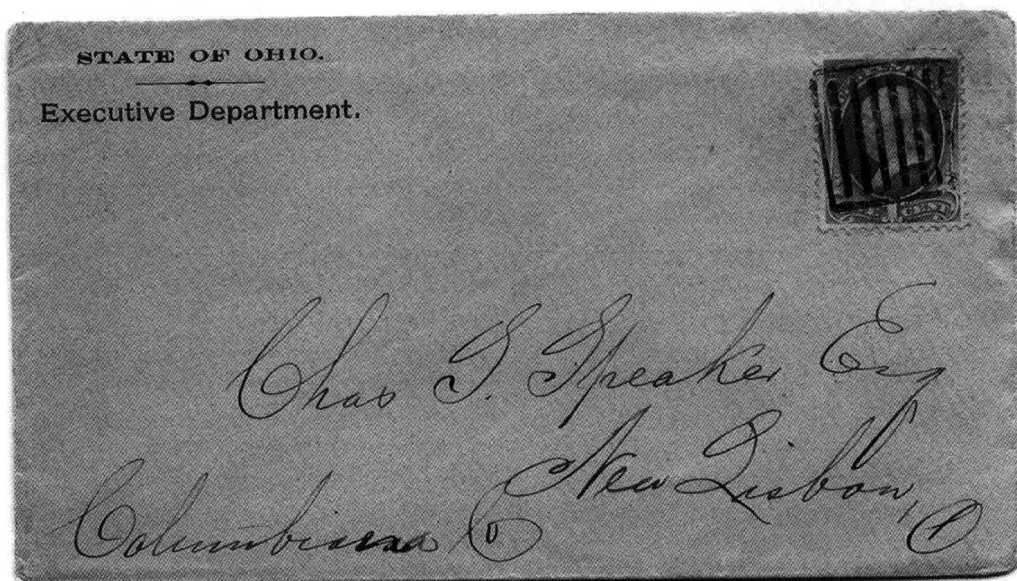 STATE OF OHIO.
Executive Department.
1
Chas S. Speaker Esq
New Lisbon,
Columbiana Co O